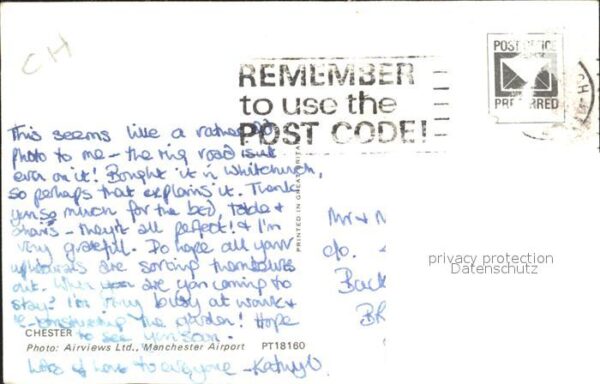 CH
POST OFFICE
PREFERRED
REMEMBER
to use the
POST CODE!
This seems like a rather
photo to me - the ring road isn't
even on it! Bought it in Whitchurch,
so perhaps that explains it. Thank
you so much for the bed, table &
chairs - they're all perfect! & I'm
very grateful. Do hope all your
are sorting themselves
out. When you are you coming to
stay? I'm very busy at work &
the garden! Hope
to see you soon.
Lots of love to everyone - Kathy
PRINTED IN GREAT BRITAIN
Mr &
c/o.
Back
privacy protection
Datenschutz
CHESTER
Photo: Airviews Ltd., Manchester Airport PT18160